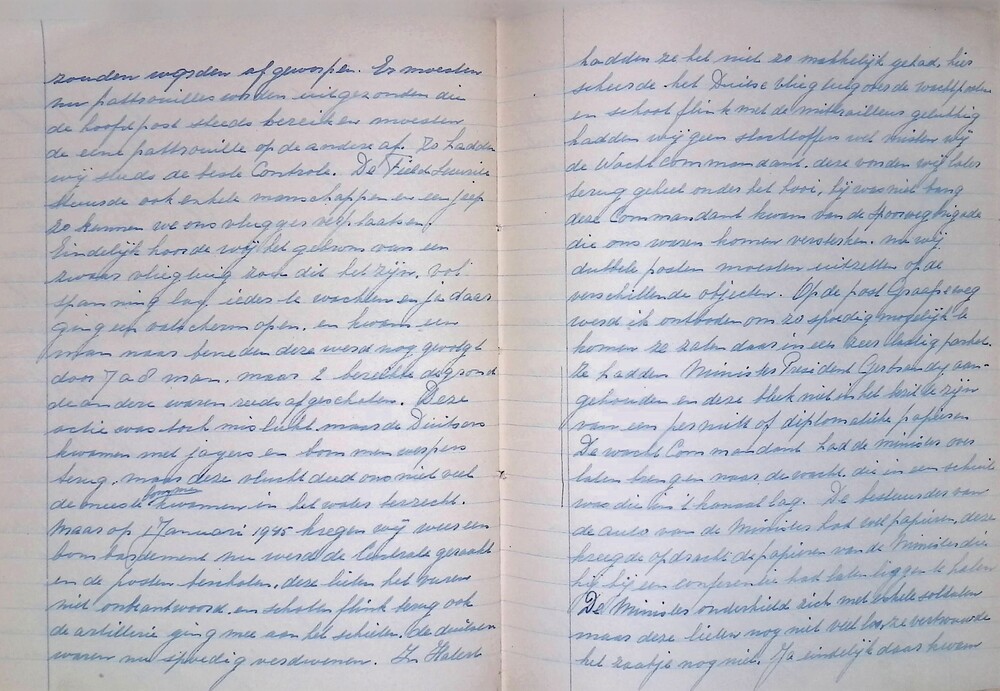 zouden worden afgeworpen. Er moesten
nu pattrouilles worden uitgezonden die
de hoofdpost steeds bereiken moesten
de eene pattrouille op de andere af. Zo hadden
wij steeds de beste Controle. De Field Security
stuurde ook enkele manschappen en een jeep
zo konnen we ons vlugger verplaatsen.
Eindelijk hoorde wij het geronk van een
zwaar vliegtuig zou dit het zijn, vol
spanning lag ieder te wachten en ja daar
ging een valscherm open. en kwam een
man naar beneden deze werd nog gevolgd
door 7 a 8 man. maar 2 bereikte de grond
de andere waren reeds afgeschoten. Deze
actie was toch mislukt maar de Duitsers
kwamen met jagers en bommenwerpers
terug. maar deze vlucht deed ons niet veel
de meeste bommen kwamen in het water terecht.
Maar op 1 Januari 1945 kregen wij weer een
bombardement nu werd de Centrale geraakt
en de posten beschoten, deze lieten het vuren
niet onbeantwoord en schoten flink terug ook
de artillerie ging mee aan het schieten. de duitsers
waren nu spoedig verdwenen. In Halert
hadden ze het niet zo makkelijk gehad, hier
scheerde het Duitse vliegtuig over de wachtposten
en schoot flink met de mitrailleurs gelukkig
hadden wij geen slachtoffers wel misten wij
de Wacht Commandant. deze vonden wij later
terug geheel onder het hooi, hij was niet bang
deze Commandant kwam van de spoorwegbrigade
die ons waren komen versterken. nu wij
dubbele posten moesten uitzetten op de
verschillende objecten. Op de post Graafseweg
werd ik ontboden om zo spoedig mogelijk te
komen ze zaten daar in een zeer lastig parket.
Ze hadden Minister President Gerbrandy aan-
gehouden en deze bleek niet in het bezit te zijn
van een permitt of diplomatieke papieren
De wacht Commandant had de minister over
laten brengen naar de wacht die in een schuit
was die in 't kanaal lag. De bestuurder van
de auto van de Minister had wel papieren, deze
kreeg de opdracht de papieren van de Minister die
hij bij een conferentie had laten liggen te halen
De Minister onderhield zich met enkele soldaten
maar deze lieten nog niet veel los, ze vertrouwde
het zaakje nog niet. Ja eindelijk daar kwam